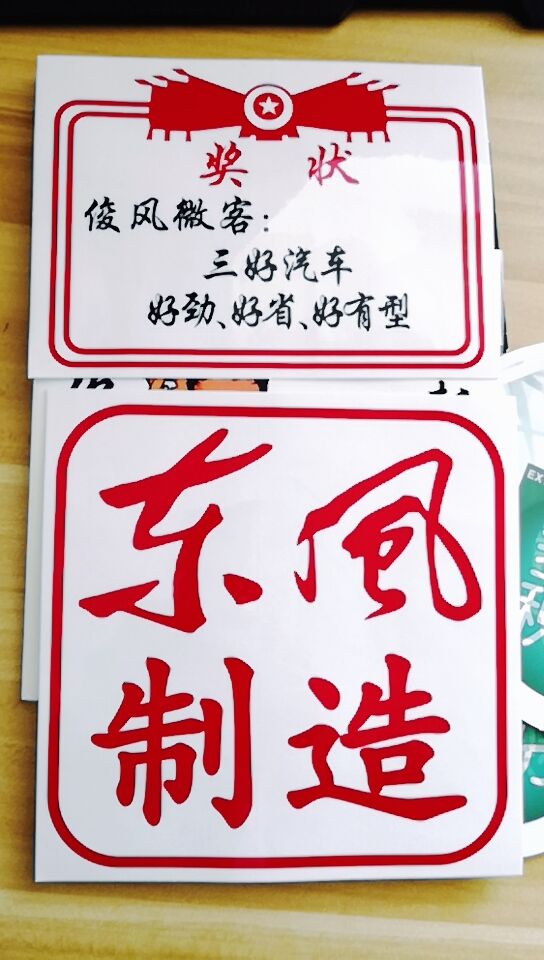 奖 状
俊风微客：
三好汽车
好劲、好省、好有型
东风
制造
EX